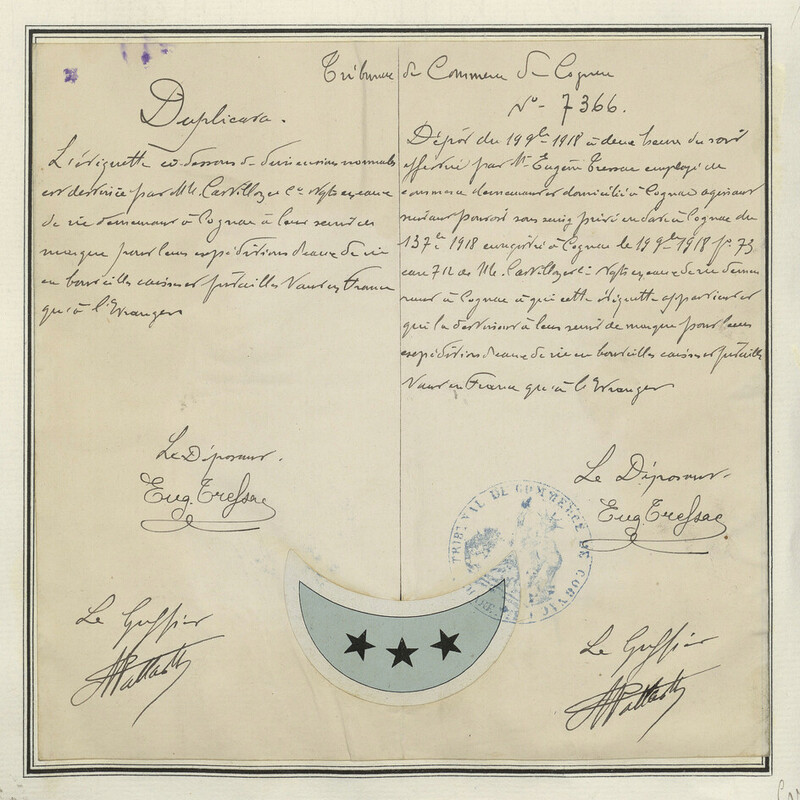 Tribunal de Commerce de Cognac
Duplicata.
L'étiquette ci-dessous de dimensions normales
est destinée par MM. Castillon et Cie Negts en eaux
de vie demeurant à Cognac à leur servir de
marque pour leurs expéditions d'eaux de vie
en bouteilles caisses et futailles tant en France
qu'à l'Etranger
Le Déposant.
Eug. Tressac
Le Greffier
No - 7366.
Dépôt du 19 9bre 1918 à deux heures du soir
effectué par Mr Eugène Tressac employé de
commerce demeurant et domicilié à Cognac agissant
suivant pouvoir sous seing privé en date à Cognac du
13 7bre 1918 enregistré à Cognac le 19 9bre 1918 fo 73
case 711 de MM. Castillon et Cie Negts en eaux de vie demeu
rant à Cognac à qui cette étiquette appartient et
qui la destinent à leur servir de marque pour leurs
expéditions d'eaux de vie en bouteilles caisses et futailles
tant en France qu'à l'Etranger
Le Déposant.
Eug Tressac
TRIBUNAL DE COMMERCE DE COGNAC
Le Greffier